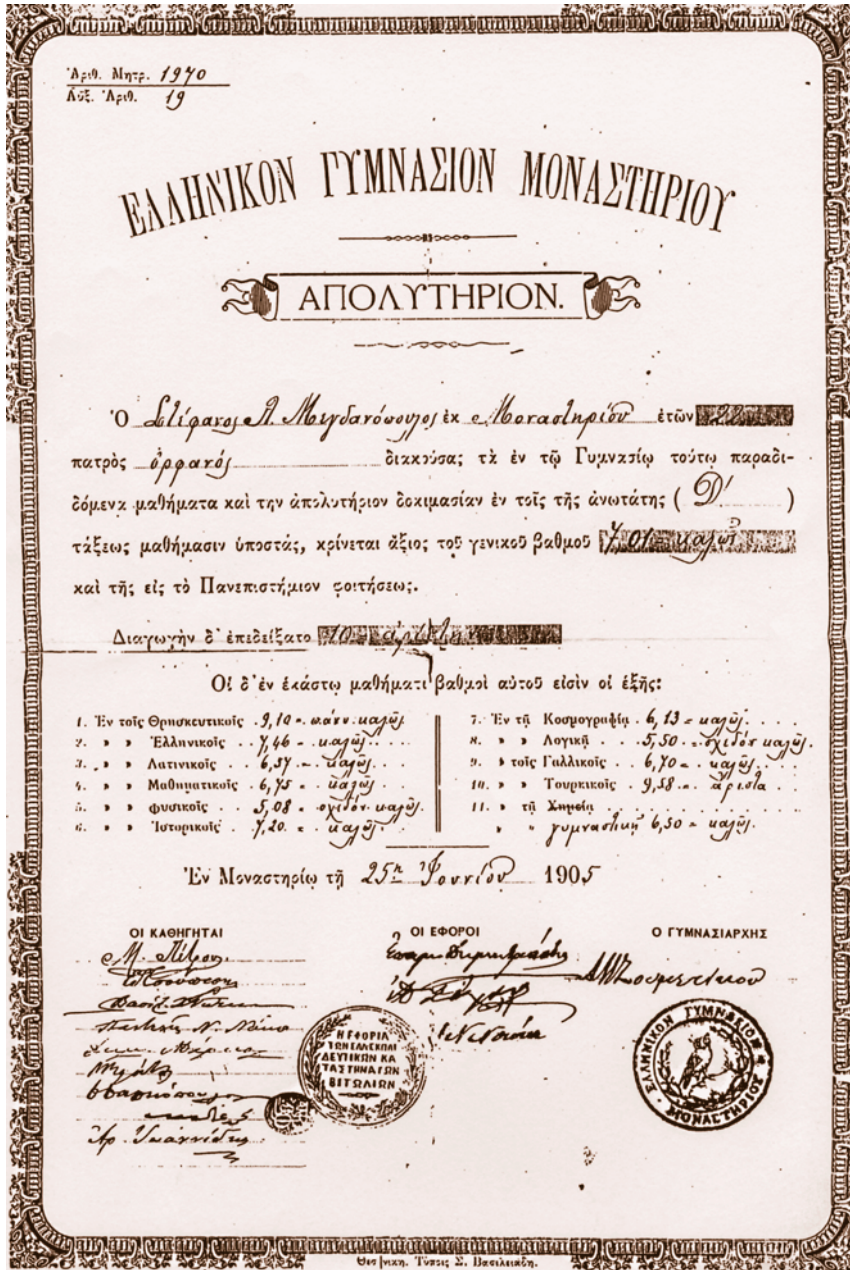 Ἀριθ. Μητρ. 1970
Αὔξ. Ἀριθ. 19
ΕΛΛΗΝΙΚΟΝ ΓΥΜΝΑΣΙΟΝ ΜΟΝΑΣΤΗΡΙΟΥ
ΑΠΟΛΥΤΗΡΙΟΝ.
Ὁ Στέφανος Α. Μεγδανόπουλος ἐκ Μοναστηρίου ἐτῶν 22
πατρὸς ὀρφανός διακούσας τὰ ἐν τῷ Γυμνασίῳ τούτῳ παραδι-
δόμενα μαθήματα καὶ την ἀπολυτήριον δοκιμασίαν ἐν τοῖς τῆς ἀνωτάτης ( Δ' )
τάξεως μαθήμασιν ὑποστάς, κρίνεται ἄξιος τοῦ γενικοῦ βαθμοῦ 7,01 = καλῶς
καὶ τῆς εἰς τὸ Πανεπιστήμιον φοιτήσεως.
Διαγωγὴν δ' ἐπεδείξατο 10
Οἱ δ' ἐν ἑκάστῳ μαθήματι βαθμοὶ αὐτοῦ εἰσὶν οἱ ἑξῆς:
1. Ἐν τοῖς Θρησκευτικοῖς . 9,10 = πάνυ καλῶς.
2. » » Ἑλληνικοῖς . . 7,46 = καλῶς . . .
3. » » Λατινικοῖς . . 6,57 = καλῶς . . .
4. » » Μαθηματικοῖς . 6,75 = καλῶς . . .
5. » » Φυσικοῖς . . 5,08 = σχεδὸν καλῶς.
6. » » Ἱστορικοῖς . . 7,20 = καλῶς . . .
7. Ἐν τῇ Κοσμογραφίᾳ . 6,13 = καλῶς . . . .
8. » » Λογικῇ . . 5,50 = σχεδὸν καλῶς.
9. » τοῖς Γαλλικοῖς . 6,70 = καλῶς . . .
10. » » Τουρκικοῖς . 9,58 = ἄριστα . . .
11. » τῇ Χημείᾳ . . . . . . . .
» » γυμναστικῇ 6,50 = καλῶς.
Ἐν Μοναστηρίῳ τῇ 25ῃ Ἰουνίου 1905
ΟΙ ΚΑΘΗΓΗΤΑΙ
ΟΙ ΕΦΟΡΟΙ
Ο ΓΥΜΝΑΣΙΑΡΧΗΣ
Ἀρ. Ἰωαννίδης
Η ΕΦΟΡΙΑ
ΤΩΝ ΕΛΛ ΕΚΠΑΙ
ΔΕΥΤΙΚΩΝ ΚΑ
ΤΑΣΤΗΜΑΤΩΝ
ΒΙΤΩΛΙΩΝ
ΕΛΛΗΝΙΚΟΝ ΓΥΜΝΑΣΙΟΝ
ΜΟΝΑΣΤΗΡΙΟΥ
Τύποις Σ. Βασιλειάδη.